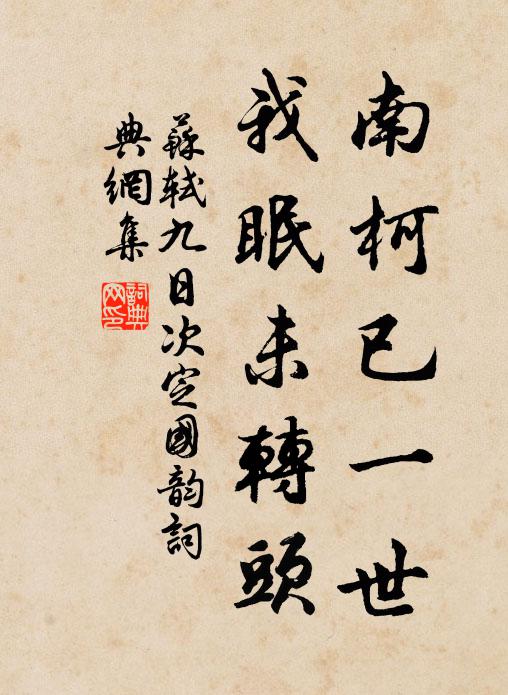 南柯已一世
我眠未轉頭
蘇軾九日次定國韵詞
典網集
詞典
网印